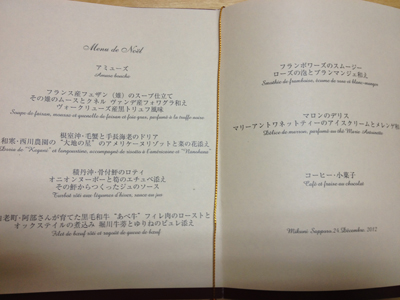 Menu de Noël
アミューズ
Amuse bouche
フランス産フェザン（雉）のスープ仕立て
その雉のムースとクネル ヴァンデ産フォワグラ和え
ヴォークリューズ産黒トリュフ風味
Soupe de faisan, mousse et quenelle de faisan et foie gras, parfumé à la truffe noire
根室沖・毛蟹と手長海老のドリア
和寒・西川農園の"大地の星"のアメリケーヌリゾットと菜の花添え
積丹沖・骨付鮃のロティ
オニオンヌーボーと筍のエチュベ添え
その鮃からつくったジュのソース
Turbot rôti aux légumes d'hiver, sauce au jus
白老町・阿部さんが育てた黒毛和牛"あべ牛"フィレ肉のローストと
オックステイルの煮込み 堀川牛蒡とゆりねのピュレ添え
Filet de bœuf rôti et ragoût de queue de bœuf
フランボワーズのスムージー
ローズの泡とブランマンジェ和え
Smoothie de framboise, écume de rose et blanc-manger
マロンのデリス
マリーアントワネットティーのアイスクリームとメレンゲ和え
Délice de marron, parfumé au thé Marie-Antoinette
コーヒー・小菓子
Café et fraise au chocolat
Mikuni Sapporo 24 Décembre, 2012